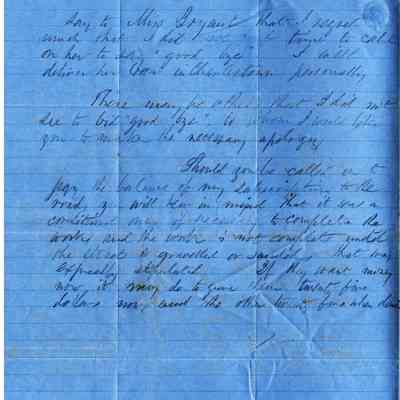 say to Miss Bryant that I regret
much that I did not get time to call
on her to say "good bye" I will
deliver her box in personally
There may be others that I did not
see to bid "good bye" to whom I would like
you to make the necessary apology
Should you be called on to
pay the balance of my subscription to the
road, you will bear in mind that it was a
conditional one, depending to completion the
works and the work is not complete until
the street is gravelled or sanded, that was
expressly stipulated. If they want money
now, it may do to give them twenty five
dollars now and the other twenty five when done